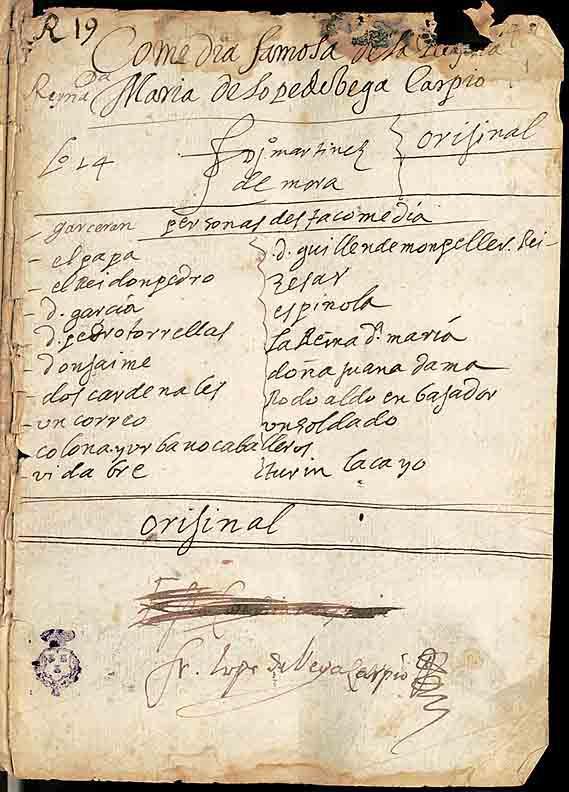 R 19
Comedia famosa de la Reyna
Reyna Da Maria de lopedebega Carpio
Lo 14
Do martinez
de mora
orisinal
garceran personas destacomedia
el papa
el Rei don pedro
d. garcia
d. pedro torrellas
don jaime
dos cardenales
un correo
colona y urbano caballeros
vidabre
d. guillen de monpeller. Rei
zesar
espinola
la Reina da. maria
doña juana dama
Rodoaldo enbajador
un soldado
turin lacayo
orisinal
fr. Lope de Vega Carpio